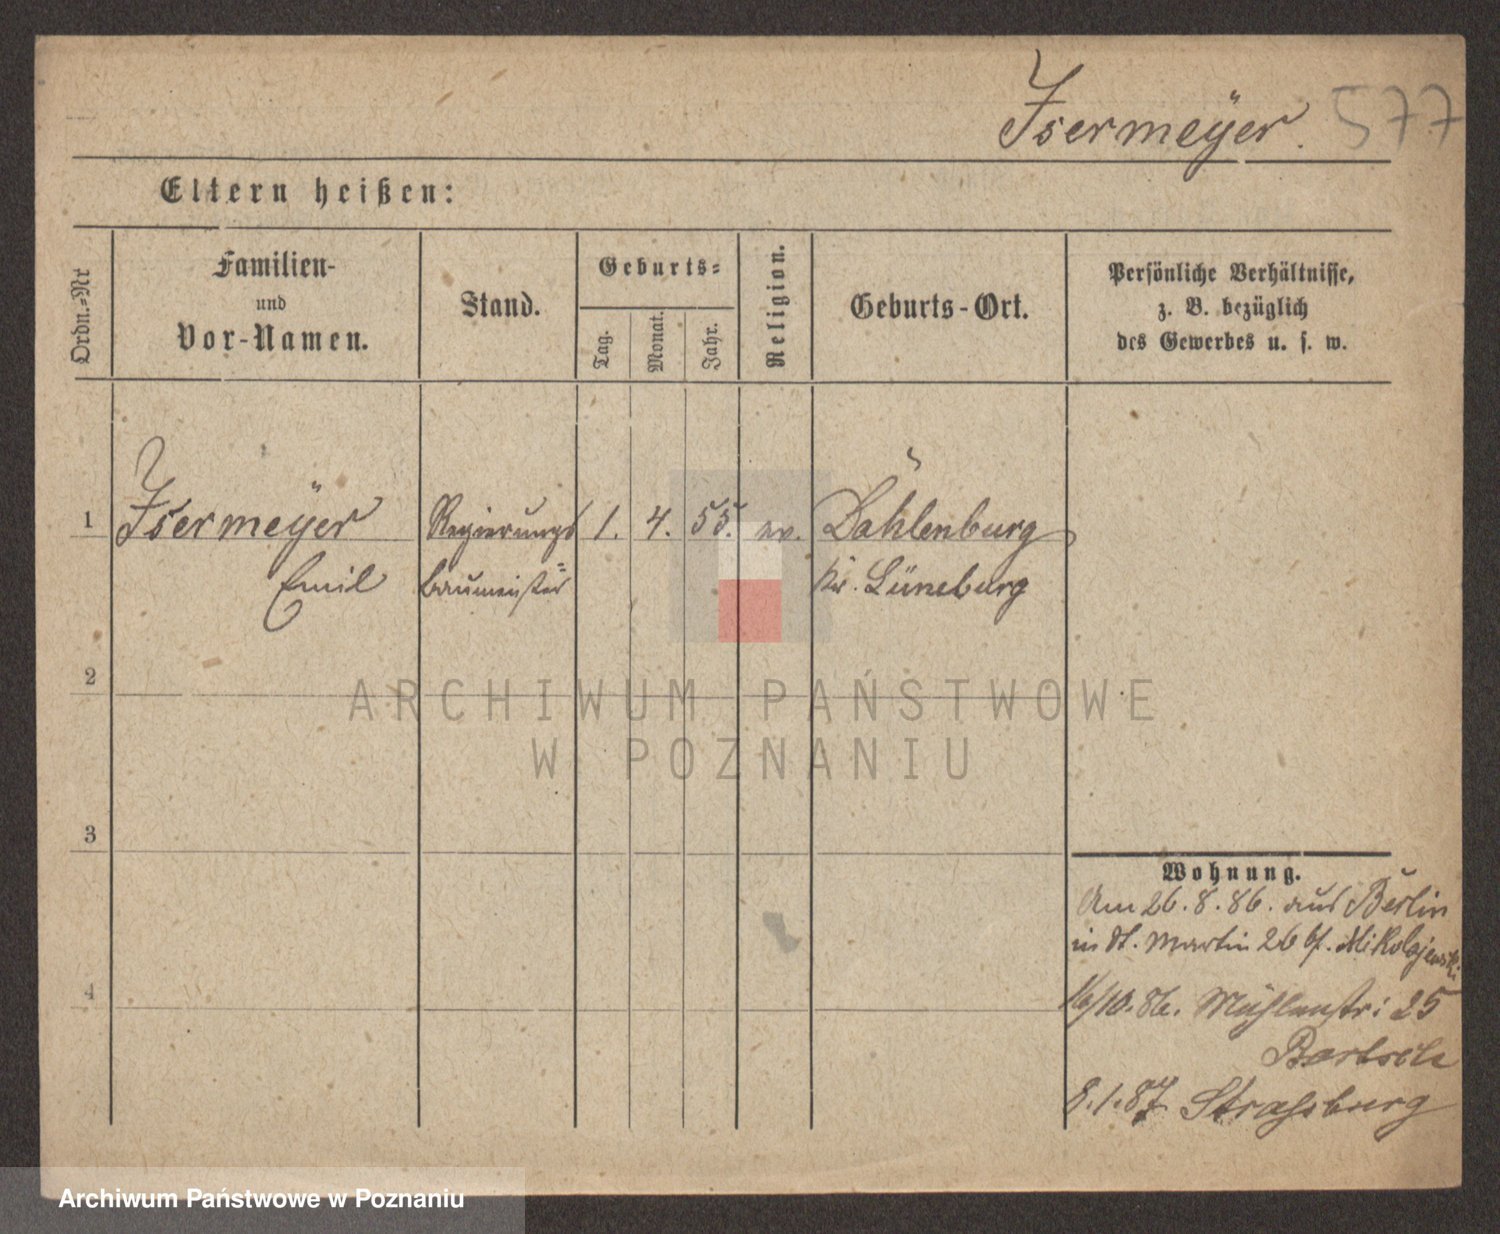 Isermeÿer. 577
Eltern heißen:
Ordn.=Nr
Familien-
und
Vor-Namen.
Stand.
Geburts=
Tag.
Monat.
Jahr.
Religion.
Geburts-Ort.
Persönliche Verhältnisse,
z. B. bezüglich
des Gewerbes u. s. w.
1 Isermeÿer Regierungs 1. 4. 55. ev. Dahlenburg
Emil baumeister Kr. Lüneburg
2
ARCHIWUM PAŃSTWOWE
W POZNANIU
3
Wohnung.
Am 26.8.86. aus Berlin
in St. Martin 26 bf. Mikolajewski
4
16/10.86. Mühlenstr: 25
Bartsch
8.1.87 Strassburg
Archiwum Państwowe w Poznaniu